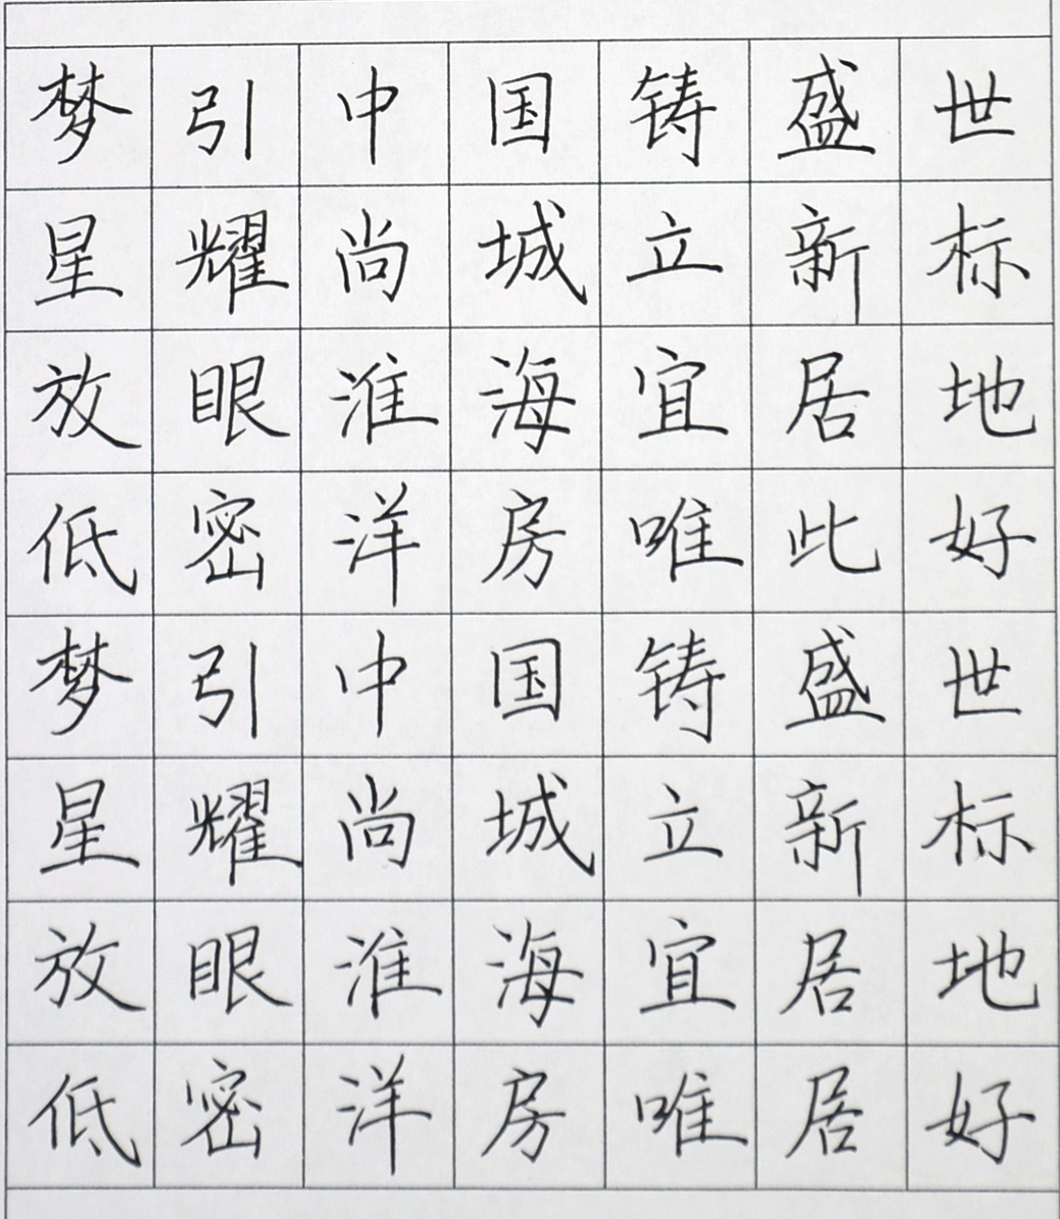 梦引中国铸盛世
星耀尚城立新标
放眼淮海宜居地
低密洋房唯此好
梦引中国铸盛世
星耀尚城立新标
放眼淮海宜居地
低密洋房唯居好